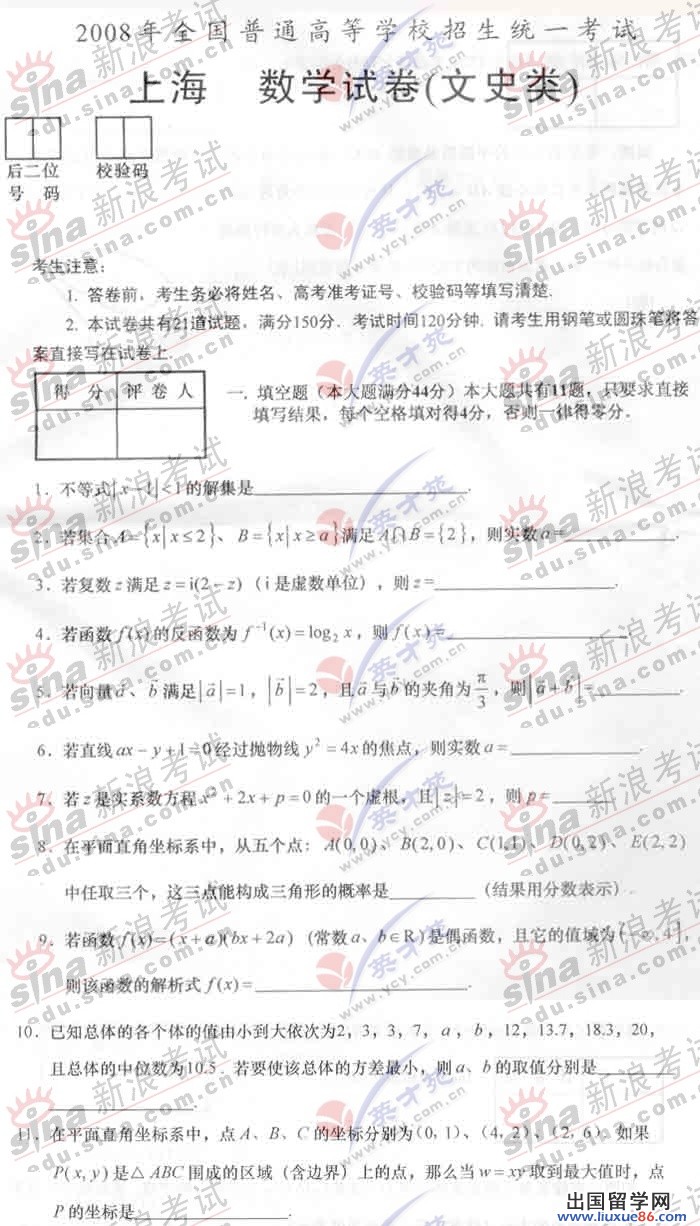 2008年全国普通高等学校招生统一考试
上海 数学试卷(文史类)
后二位 校验码
号 码
考生注意:
1. 答卷前，考生务必将姓名、高考准考证号、校验码等填写清楚.
2. 本试卷共有21道试题，满分150分. 考试时间120分钟. 请考生用钢笔或圆珠笔将答
案直接写在试卷上.
得 分 评 卷 人
一. 填空题（本大题满分44分）本大题共有11题，只要求直接
填写结果，每个空格填对得4分，否则一律得零分.
1. 不等式|x−1|<1的解集是____________.
2. 若集合A={x|x≤2}、B={x|x≥a}满足A∩B={2}，则实数a=____________.
3. 若复数z满足z=i(2−z)（i是虚数单位），则z=____________.
4. 若函数f(x)的反函数为f⁻¹(x)=log₂x，则f(x)=____________.
5. 若向量a⃗、b⃗满足|a⃗|=1，|b⃗|=2，且a⃗与b⃗的夹角为π/3，则|a⃗+b⃗|=____________.
6. 若直线ax−y+1=0经过抛物线y²=4x的焦点，则实数a=____________.
7. 若z是实系数方程x²+2x+p=0的一个虚根，且|z|=2，则p=____________.
8. 在平面直角坐标系中，从五个点：A(0,0)、B(2,0)、C(1,1)、D(0,2)、E(2,2)
中任取三个，这三点能构成三角形的概率是____________（结果用分数表示）.
9. 若函数f(x)=(x+a)(bx+2a)（常数a、b∈R）是偶函数，且它的值域为(−∞,4]，
则该函数的解析式f(x)=____________.
10. 已知总体的各个体的值由小到大依次为2，3，3，7，a，b，12，13.7，18.3，20，
且总体的中位数为10.5．若要使该总体的方差最小，则a、b的取值分别是____________
____________.
11. 在平面直角坐标系中，点A、B、C的坐标分别为(0，1)、(4，2)、(2，6)．如果
P(x,y)是△ABC围成的区域（含边界）上的点，那么当w=xy取到最大值时，点
P的坐标是____________.
sina新浪考试
edu.sina.com.cn
英才苑
www.ycy.com.cn
出国留学网
www.liuxue86.com